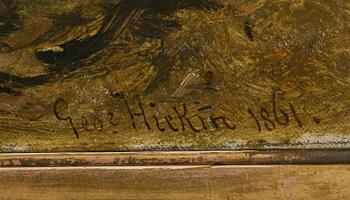 Geo: Hickin 1861.